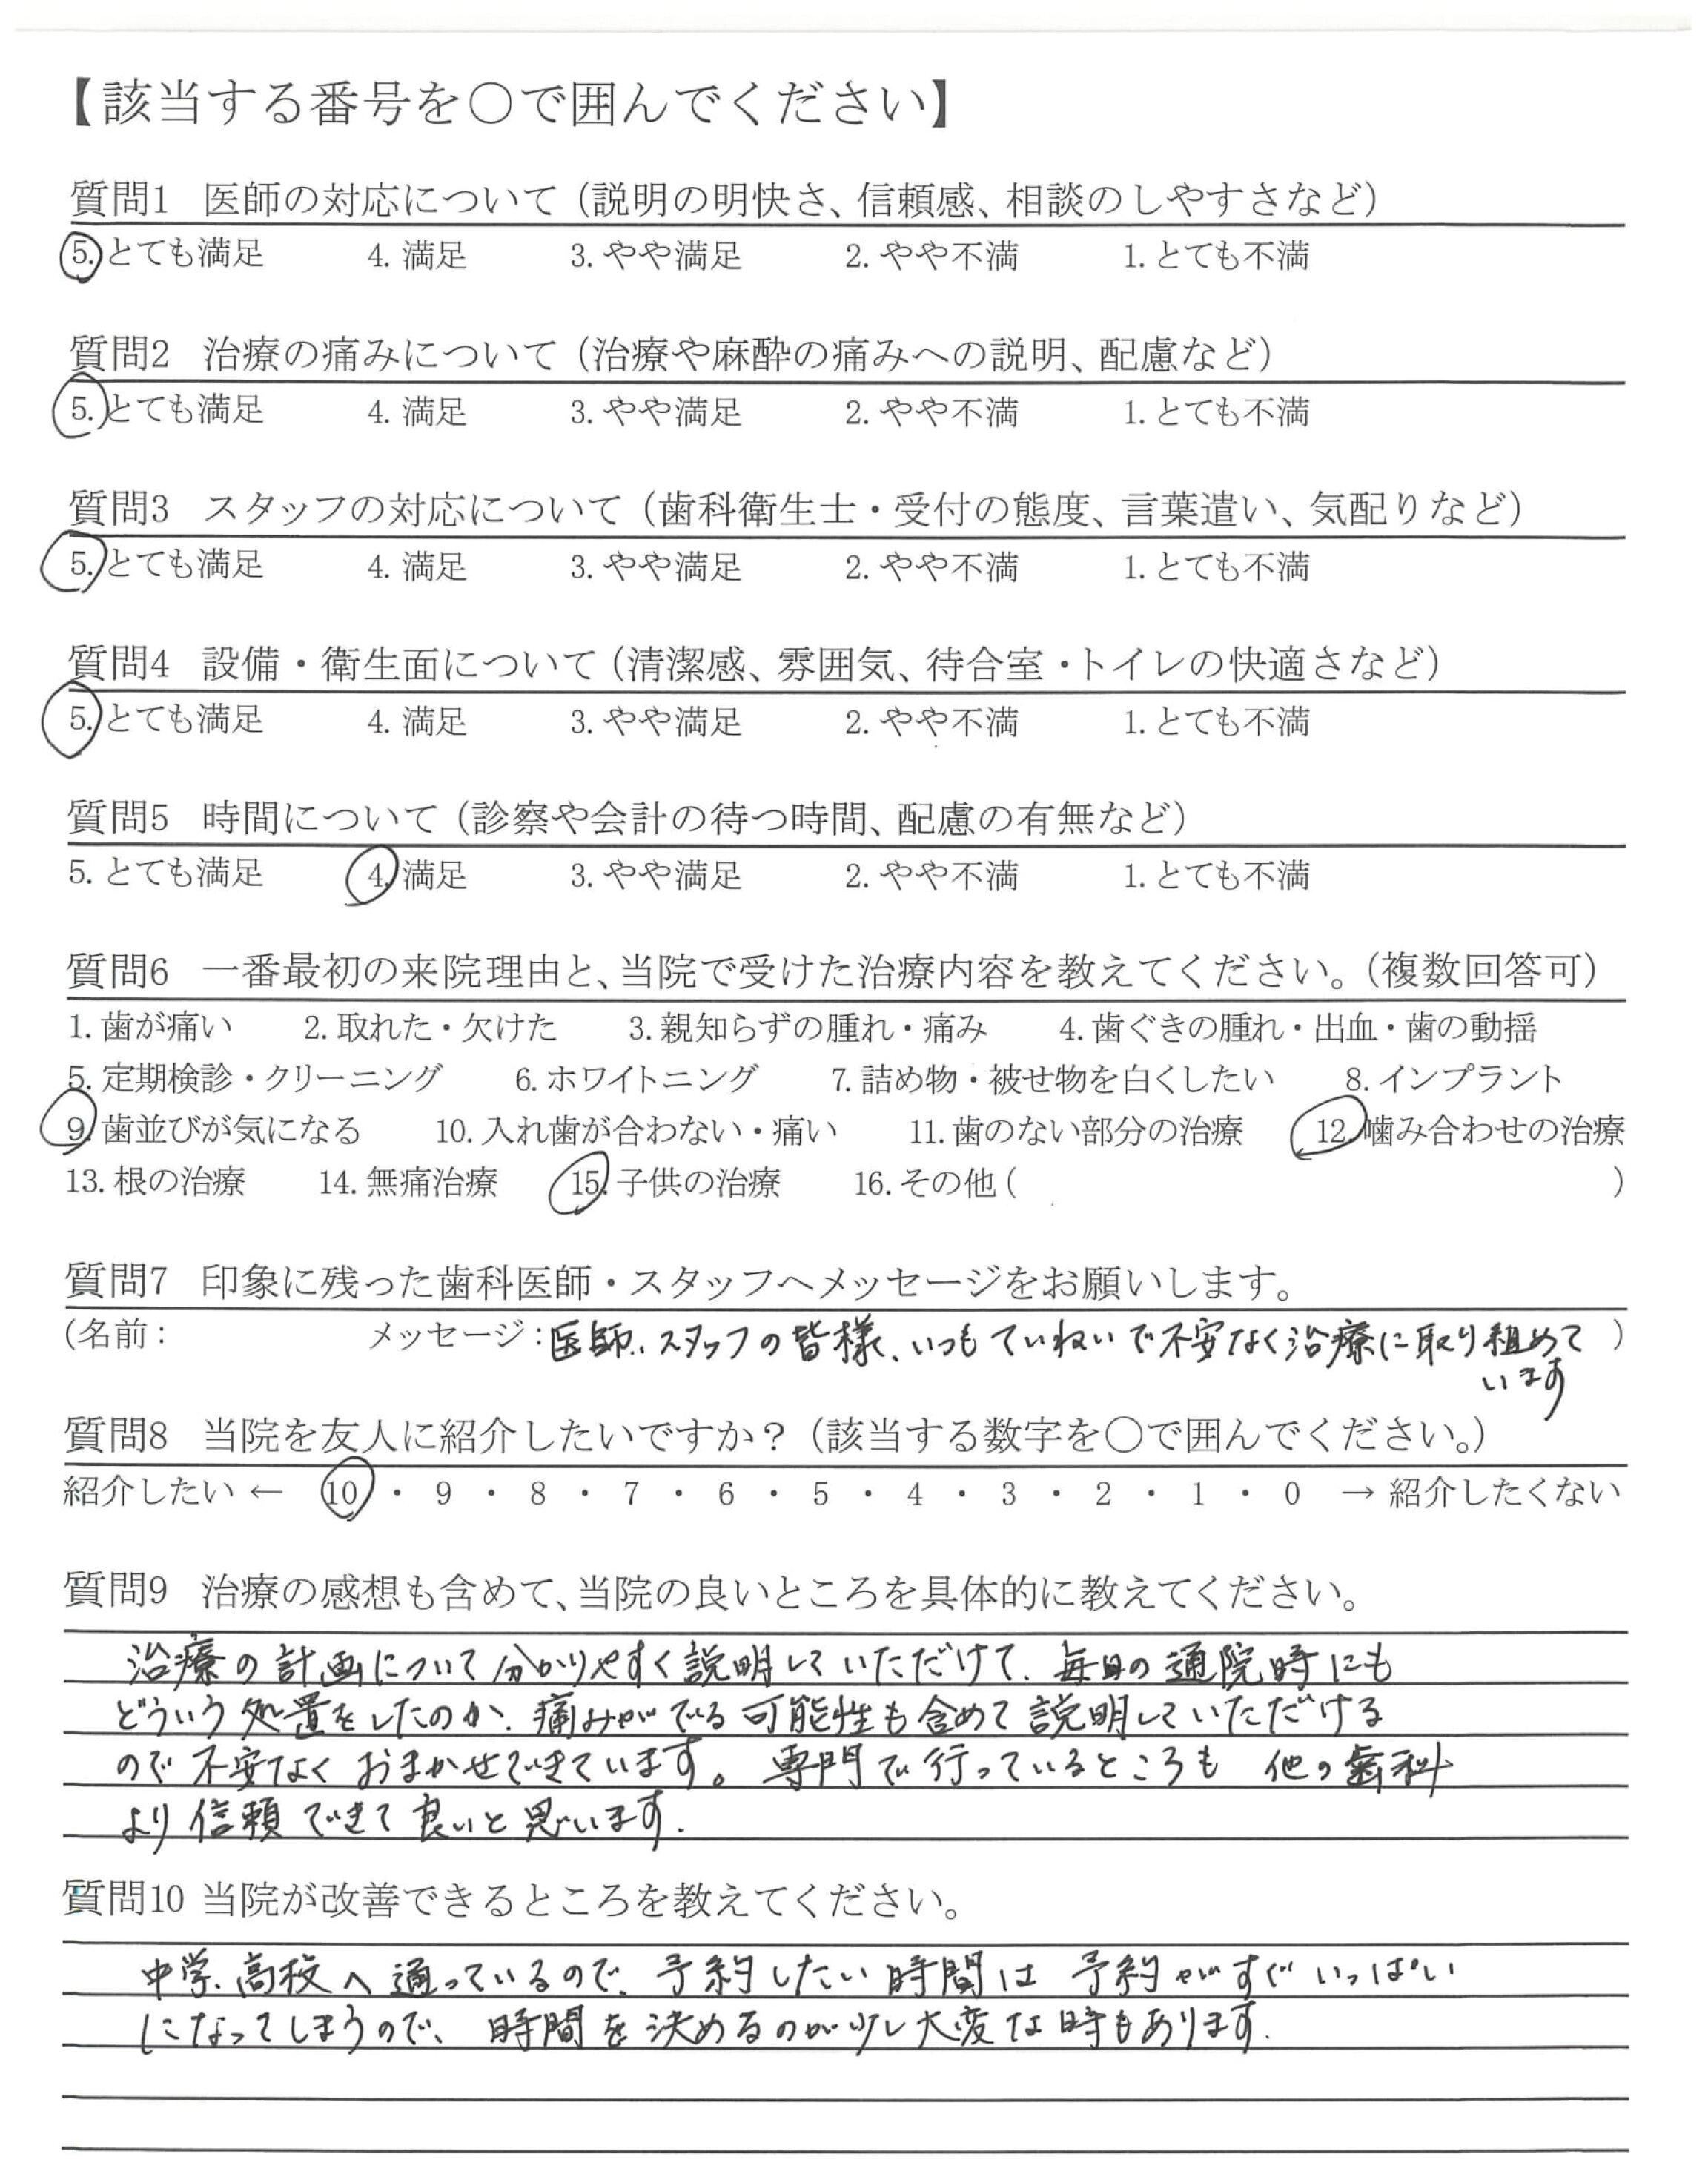 【該当する番号を○で囲んでください】
質問1 医師の対応について（説明の明快さ、信頼感、相談のしやすさなど）
5. とても満足 4. 満足 3. やや満足 2. やや不満 1. とても不満
質問2 治療の痛みについて（治療や麻酔の痛みへの説明、配慮など）
5. とても満足 4. 満足 3. やや満足 2. やや不満 1. とても不満
質問3 スタッフの対応について（歯科衛生士・受付の態度、言葉遣い、気配りなど）
5. とても満足 4. 満足 3. やや満足 2. やや不満 1. とても不満
質問4 設備・衛生面について（清潔感、雰囲気、待合室・トイレの快適さなど）
5. とても満足 4. 満足 3. やや満足 2. やや不満 1. とても不満
質問5 時間について（診察や会計の待つ時間、配慮の有無など）
5. とても満足 4. 満足 3. やや満足 2. やや不満 1. とても不満
質問6 一番最初の来院理由と、当院で受けた治療内容を教えてください。（複数回答可）
1. 歯が痛い 2. 取れた・欠けた 3. 親知らずの腫れ・痛み 4. 歯ぐきの腫れ・出血・歯の動揺
5. 定期検診・クリーニング 6. ホワイトニング 7. 詰め物・被せ物を白くしたい 8. インプラント
9. 歯並びが気になる 10. 入れ歯が合わない・痛い 11. 歯のない部分の治療 12. 噛み合わせの治療
13. 根の治療 14. 無痛治療 15. 子供の治療 16. その他（ ）
質問7 印象に残った歯科医師・スタッフへメッセージをお願いします。
（名前： メッセージ：医師、スタッフの皆様、いつもていねいで不安なく治療に取り組めて ）
います
質問8 当院を友人に紹介したいですか？（該当する数字を○で囲んでください。）
紹介したい ← 10 ・ 9 ・ 8 ・ 7 ・ 6 ・ 5 ・ 4 ・ 3 ・ 2 ・ 1 ・ 0 → 紹介したくない
質問9 治療の感想も含めて、当院の良いところを具体的に教えてください。
治療の計画について分かりやすく説明していただけて、毎日の通院時にも
どういう処置をしたのか、痛みがでる可能性も含めて説明していただける
ので不安なくおまかせできています。専門で行っているところも 他の歯科
より信頼できて良いと思います.
質問10 当院が改善できるところを教えてください。
中学、高校へ通っているので、予約したい時間は 予約がすぐいっぱい
になってしまうので、時間を決めるのが少し大変な時もあります.